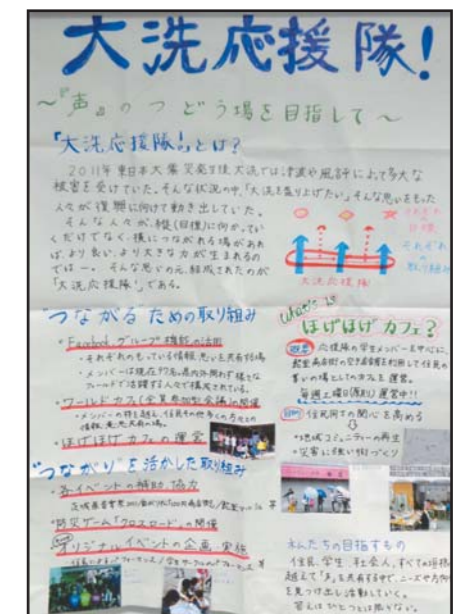 大洗応援隊!
〜『声』のつどう場を目指して〜
「大洗応援隊!」とは?
2011年東日本大震災発生後、大洗では津波や風評によって多大な
被害を受けていた。そんな状況の中、「大洗を盛り上げたい」そんな思いをもった
人々が復興に向けて動き出していた。
そんな人々が、縦(目標)に向かってい
くだけでなく、横につながれる場があれ
ば、より良い、より大きな力が生まれるの
では―。そんな思いの元、結成されたのが
「大洗応援隊!」である。
それぞれの
目標
それぞれ
の
取り組み
大洗応援隊
"つながる"ための取り組み
・Facebook グループ機能の活用
・それぞれのもっている情報、思いを共有する場
・メンバーは現在97名。県内外問わず様々な
フィールドで活躍する人々で構成されている。
・ワールドカフェ(全員参加型会議)の開催
・ほげほげカフェの運営
"つながり"を活かした取り組み
・各イベントの補助、協力
・防災ゲーム「クロスロード」の開催
・オリジナルイベントの企画、実施
What's is
ほげほげカフェ?
概要 応援隊の学生メンバーを中心に、
商店街の空き店舗を利用して住民の
憩いの場としてのカフェを運営。
毎週土曜日(原則)運営中!!
目的 住民同士の関心を高める
・地域コミュニティーの再生
・災害に強い街づくり
私たちの目指すもの
住民、学生、社会人、すべての垣根
越えて「声」を共有する中で、ニーズや方向
を見つけ出し活動していく。
答えはひとつとは限らない。